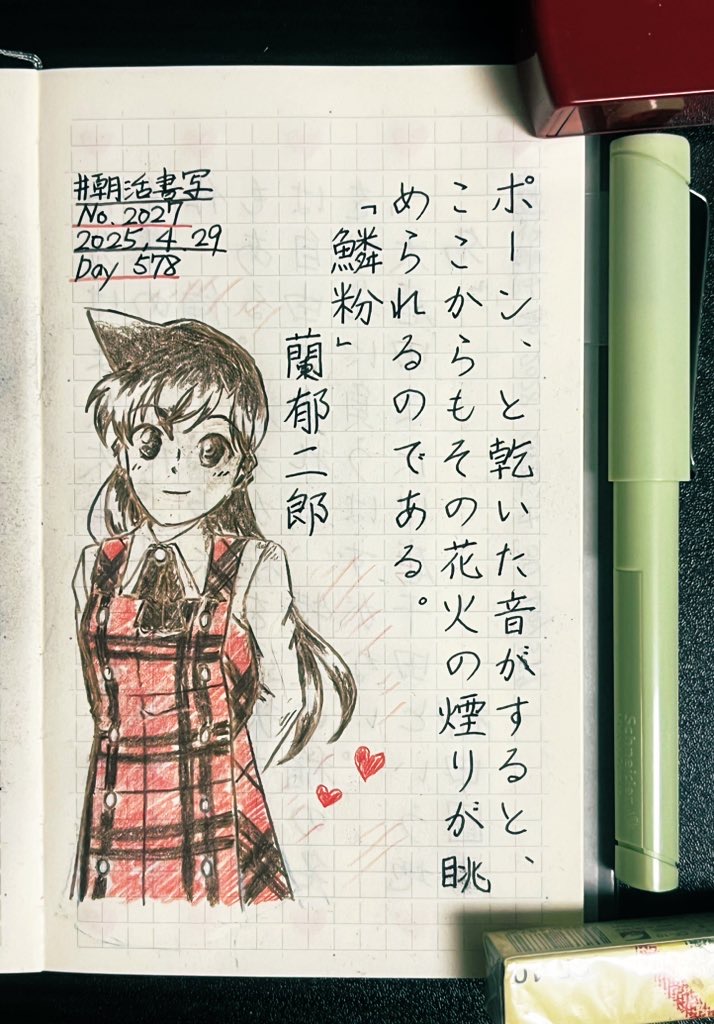 #朝活書写
No. 2027
2025, 4 29
Day 578
ポーン、と乾いた音がすると、
ここからもその花火の煙りが眺
められるのである。
「鱗粉」
蘭郁二郎
Schneider